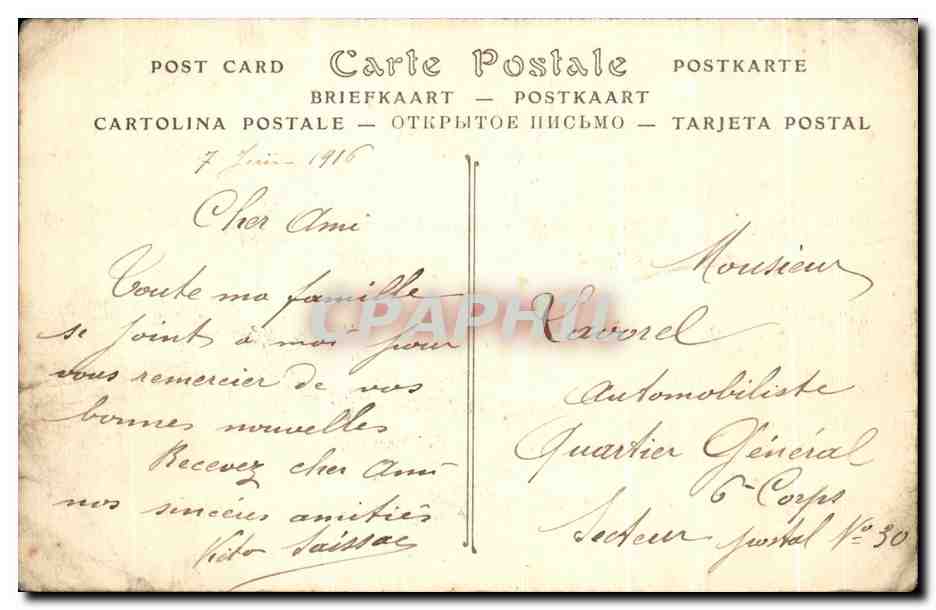 POST CARD Carte Postale POSTKARTE
BRIEFKAART — POSTKAART
CARTOLINA POSTALE — ОТКРЫТОЕ ПИСЬМО — TARJETA POSTAL
7 Juin 1916
Cher Ami
Toute ma famille
se joint à moi pour
vous remercier de vos
bonnes nouvelles
Recevez cher Ami
nos sincères amitiés
Saissac
Monsieur
Tavorel
Automobiliste
Quartier Général
6e Corps
Secteur postal No 30
CPAPHIL